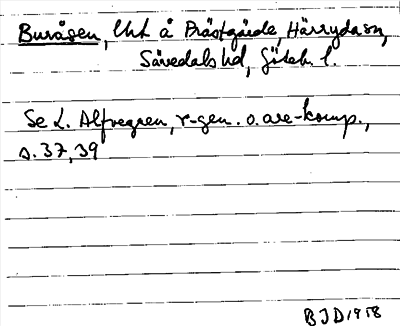 Buråsen, Uht å Prästgårde, Härryda sn,
Sävedals hd, Göteb. l.
Se L. Alfvegren, r-gen. o. are-komp.,
s. 37, 39
BJD 1958